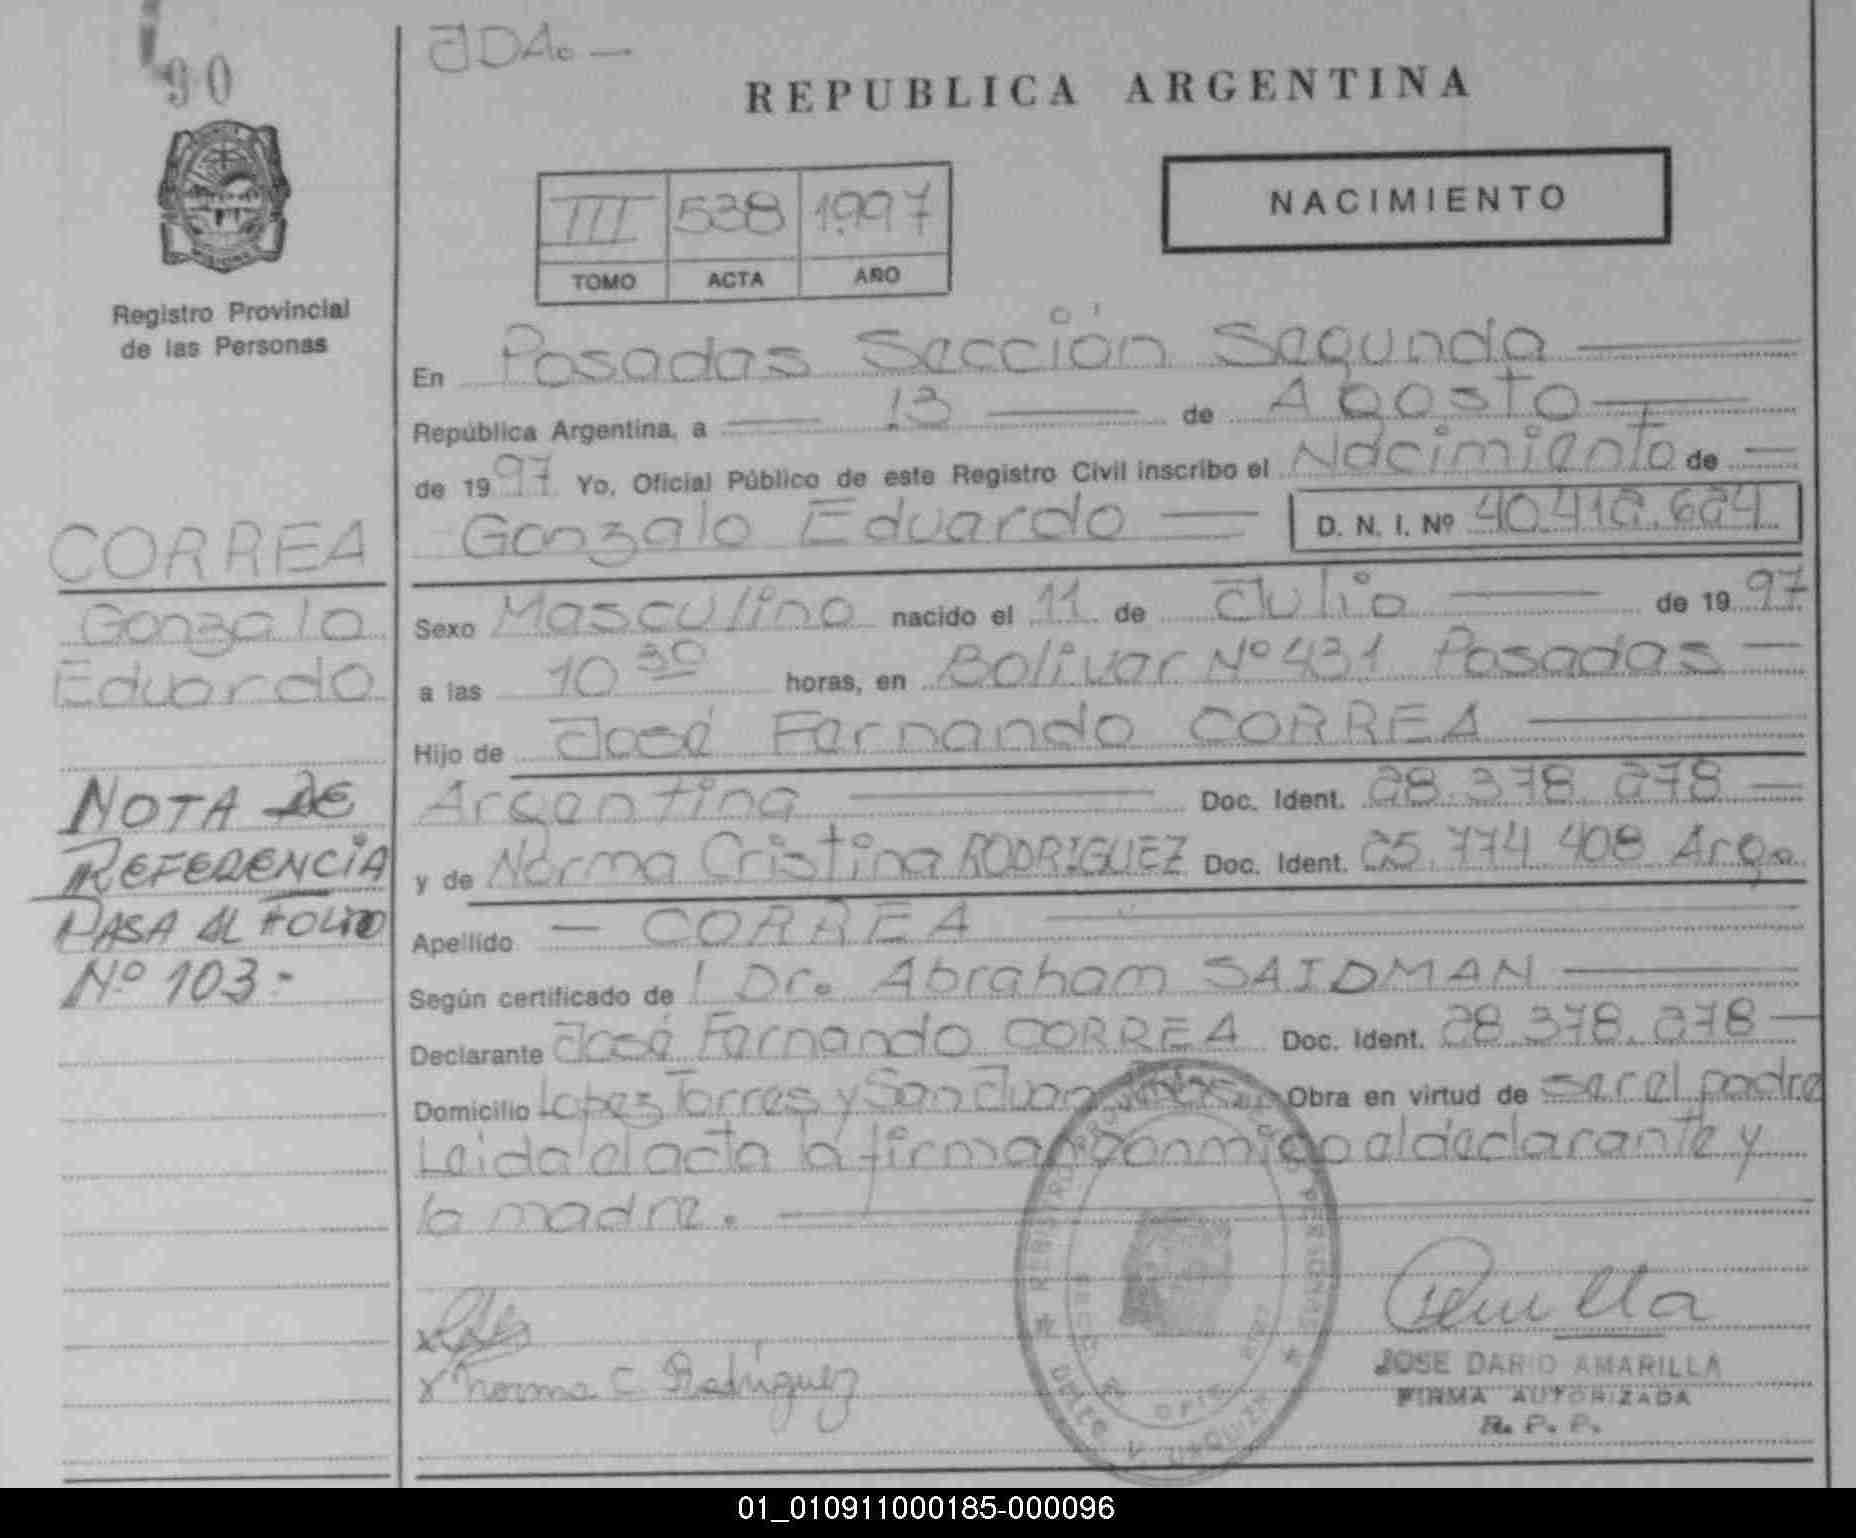 90
JDA. —
REPUBLICA ARGENTINA
III 538 1997
TOMO ACTA AÑO
NACIMIENTO
Registro Provincial
de las Personas
En Posadas Sección Segunda
República Argentina, a 13 de Agosto
de 1997 Yo, Oficial Público de este Registro Civil inscribo el Nacimiento de
Gonzalo Eduardo D. N. I. Nº
CORREA
Gonzalo
Eduardo
Sexo Masculino nacido el 11 de Julio de 1997
a las 10 30 horas, en Bolivar Nº 431 Posadas
Hijo de José Fernando CORREA
Argentina Doc. Ident. 28.378.278
y de Norma Cristina RODRIGUEZ Doc. Ident. 25.774.408 Arg.
Apellido CORREA
Según certificado de Dr. Abraham SAIDMAN
Declarante José Fernando CORREA Doc. Ident. 28.378.278
Domicilio Lopez Torres y San Juan Obra en virtud de ser el padre
Leida el acta la firman conmigo el declarante y
la madre.
NOTA DE
REFERENCIA
PASA AL FOLIO
Nº 103-
x Norma C. Rodriguez
JOSE DARIO AMARILLA
FIRMA AUTORIZADA
R. P. P.
01_010911000185-000096